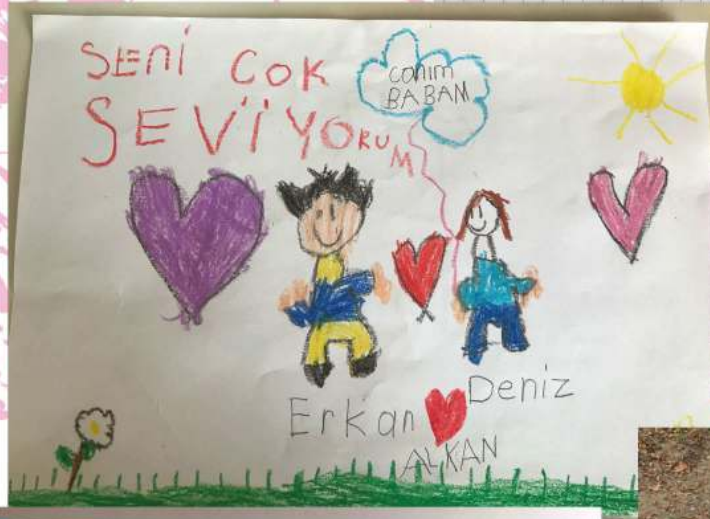 SENİ COK
SEVİİYORUM
canım
BABAM
Erkan Deniz
ALKAN